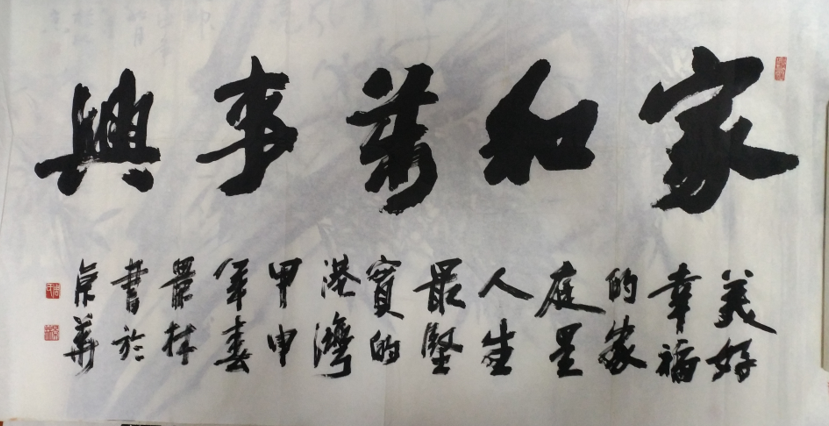 家和萬事興
美好
幸福
的家
庭是
人生
最堅
實的
港灣
甲申
年春
書於
京華